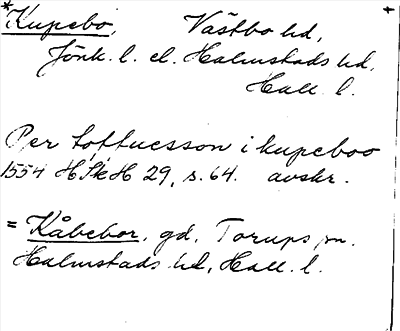 *Kupebo, Västbo hd,
Jönk. l. el. Halmstads hd,
Hall. l.
Per toffuesson i kupeboo
1554 HSkH 29, s. 64. avskr.
= Kåbebor, gd, Torups sn.
Halmstads hd, Hall. l.